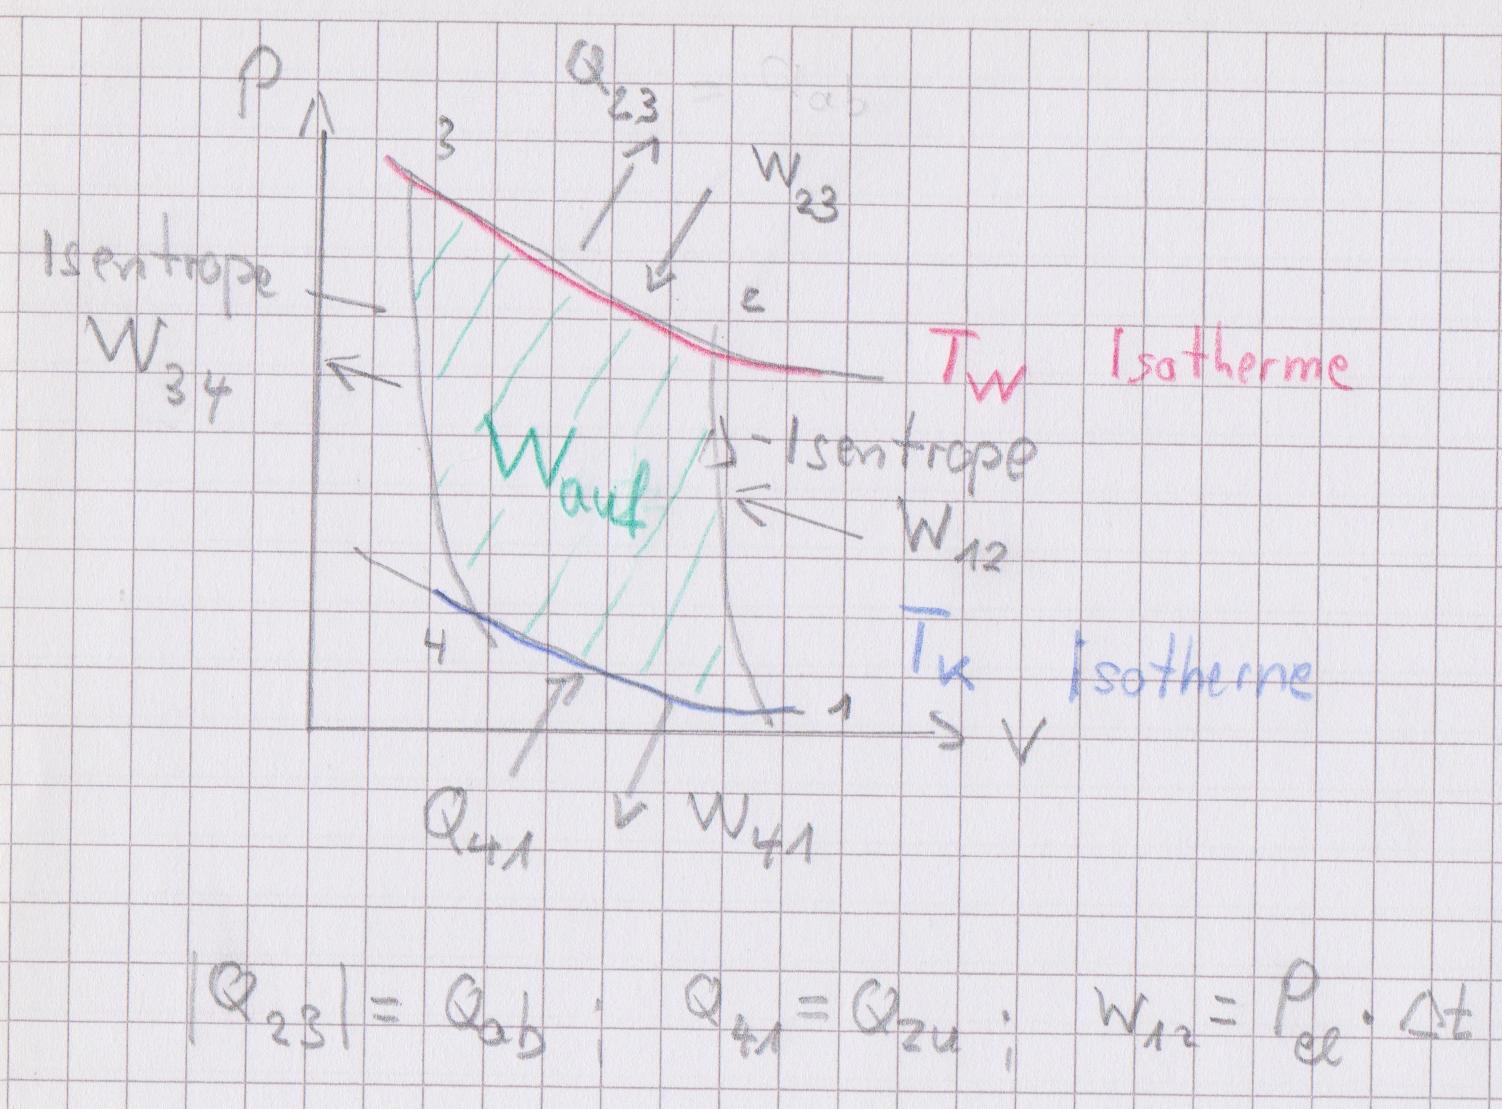 P
Q23
3
W23
Isentrope
2
W34
TW Isotherme
Wauf
-Isentrope
W12
TK Isotherme
4
1
V
Q41
W41
|Q23| = Qab ; Q41 = Qzu ; W12 = Pel · Δt